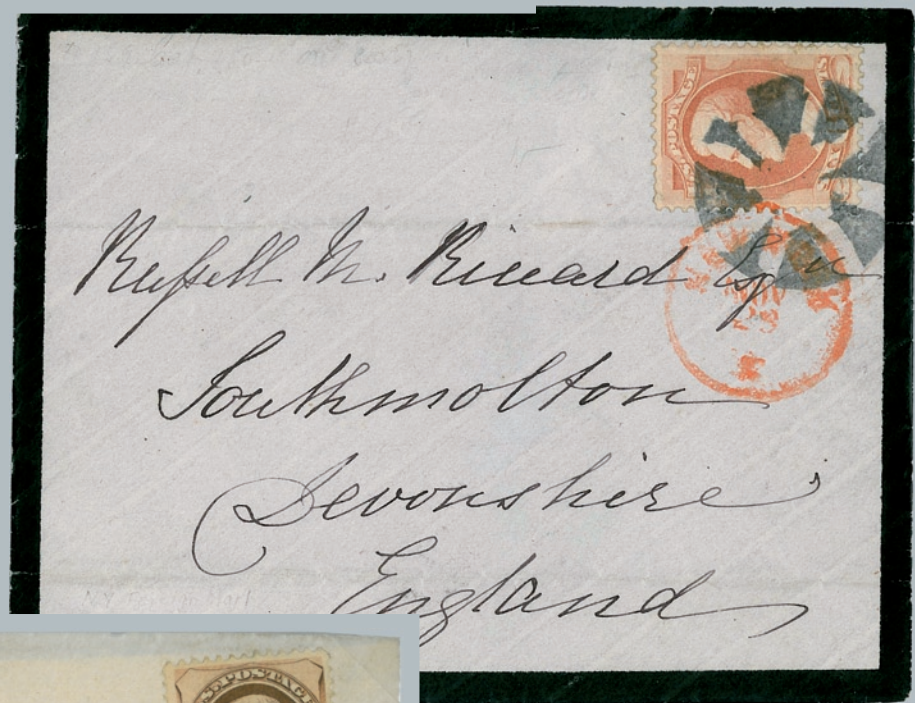 U.S. POSTAGE
Russell M. Ricard Esqr
Southmolton
Devonshire
England
N.Y. Foreign Mail
U.S. POSTAGE